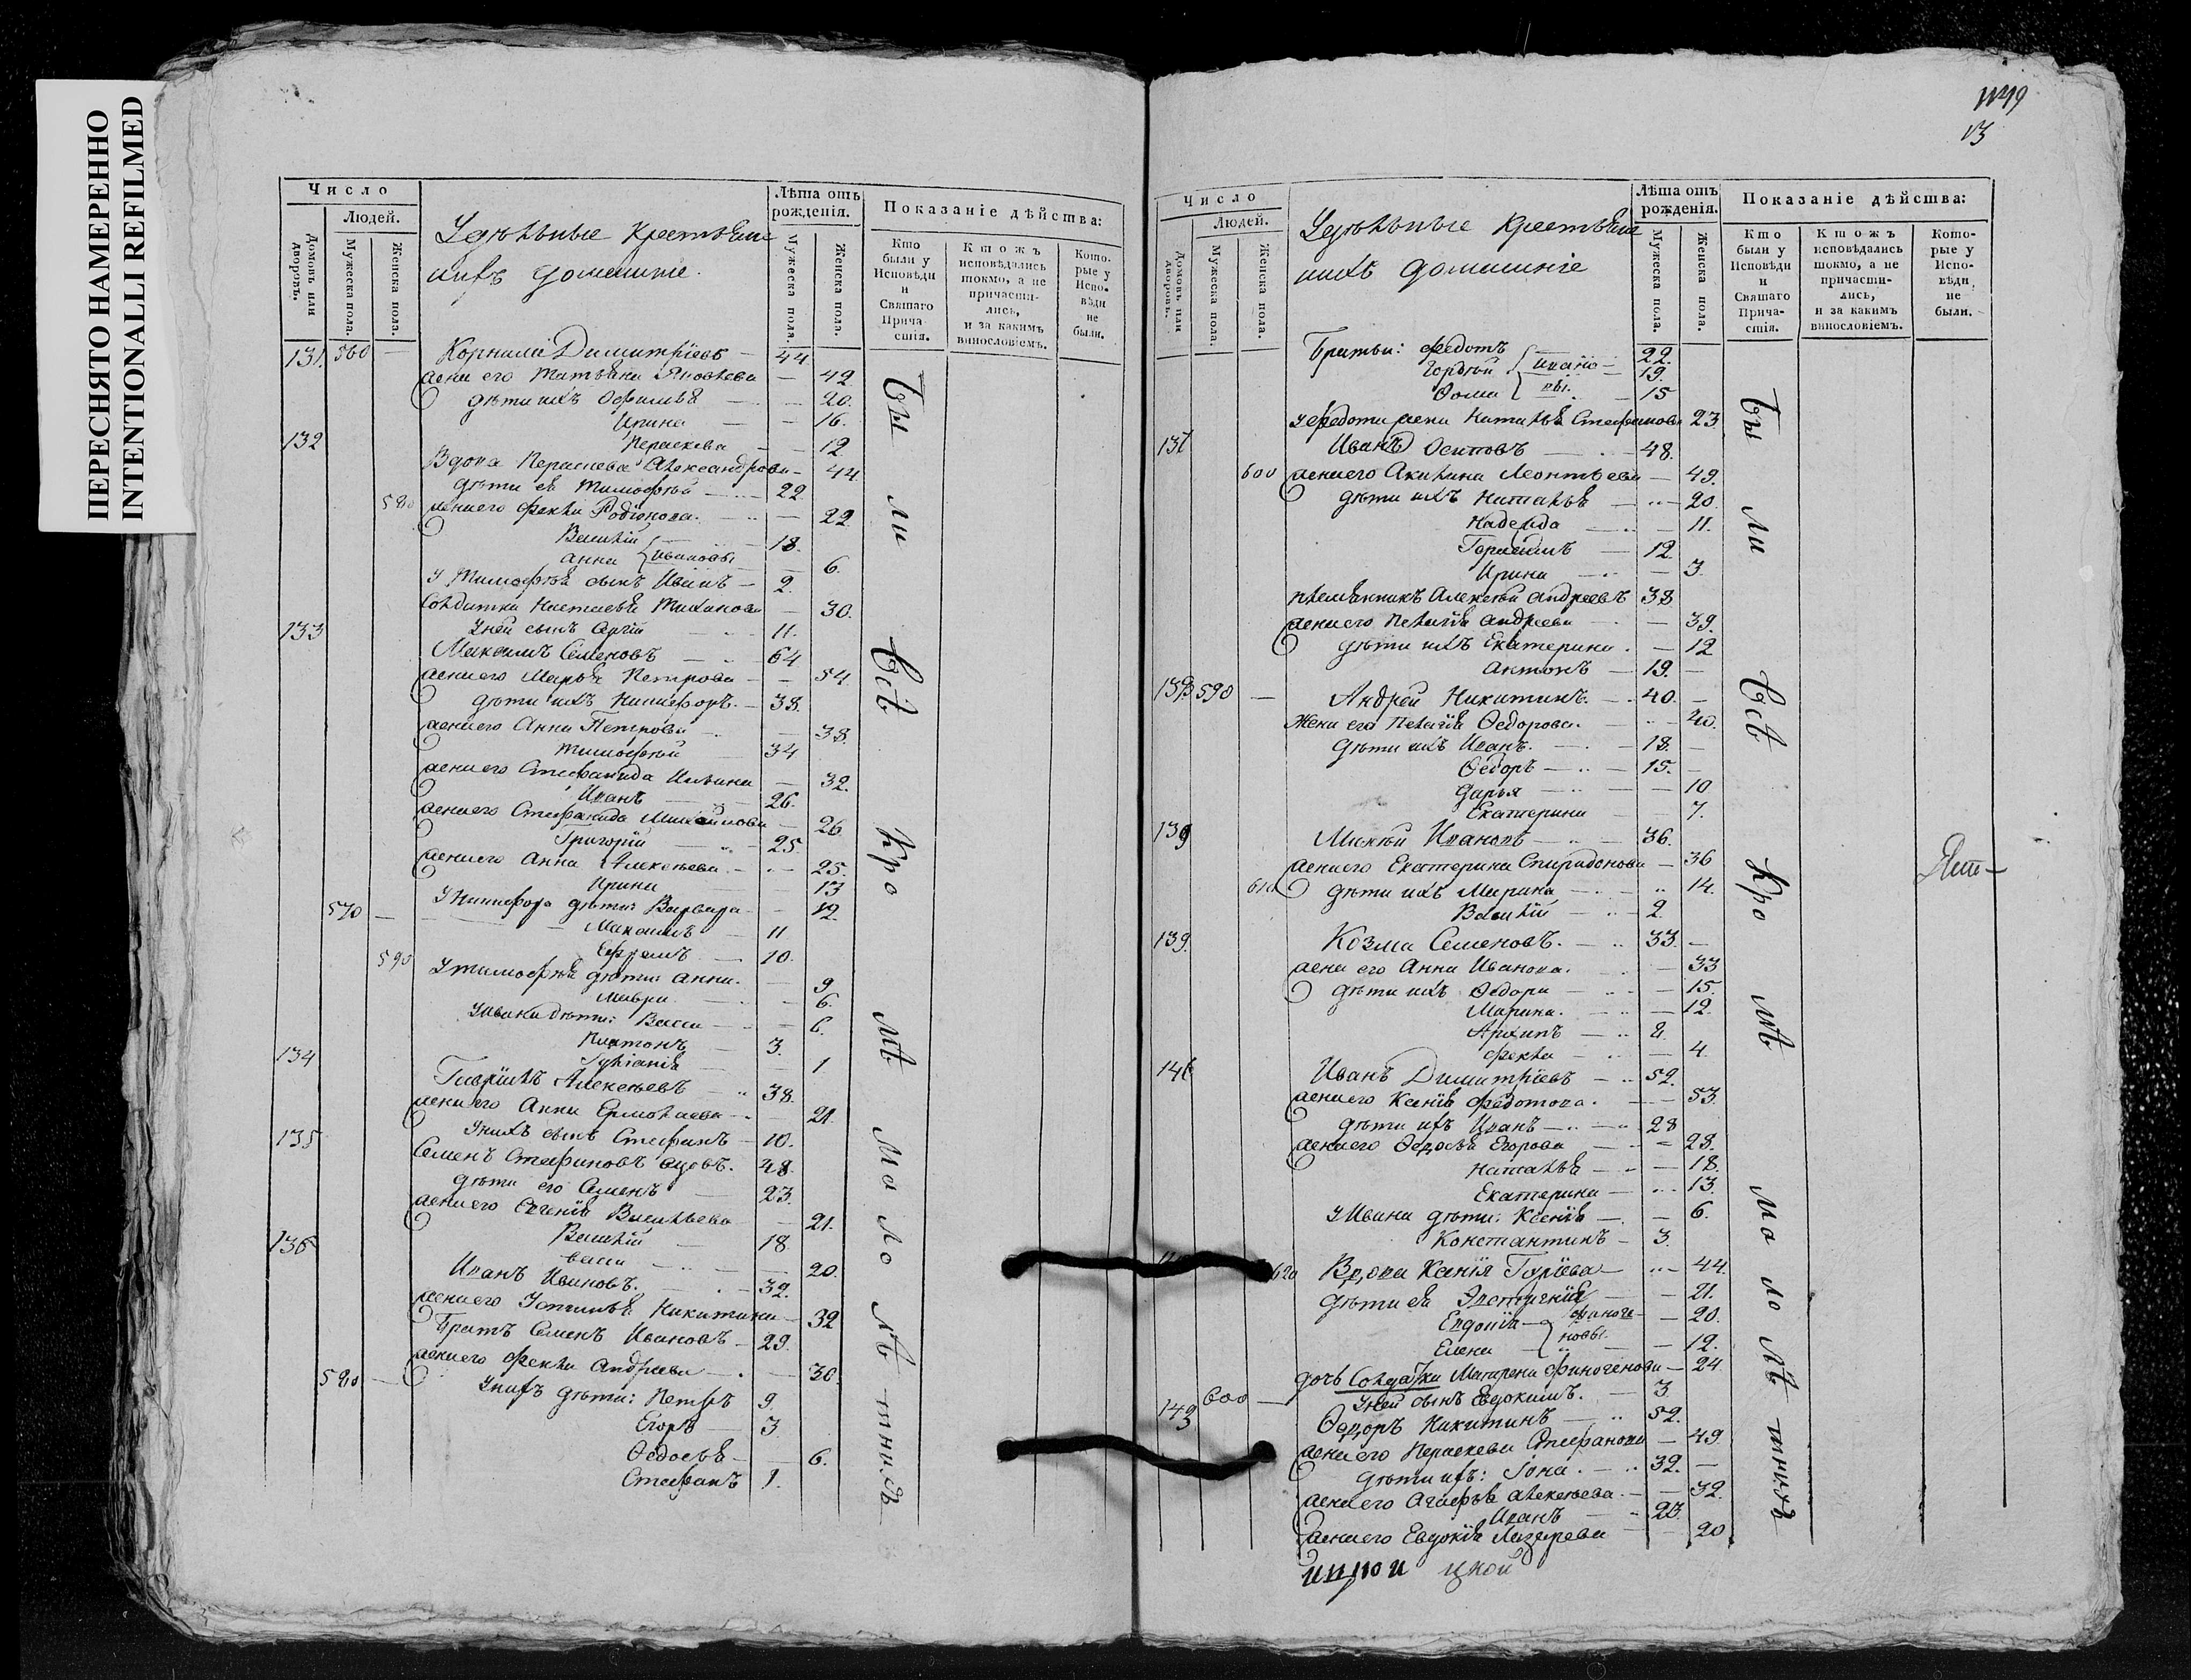 ПЕРЕСНЯТО НАМЕРЕННО
INTENTIONALLI REFILMED
Число
Людей.
Домовъ или дворовъ.
Мужеска пола.
Женска пола.
Удѣльные крестьяне
ихъ домашніе.
Лѣта отъ рожденія.
Мужеска пола.
Женска пола.
Показаніе дѣйства:
Кто были у Исповѣди и Святаго Причастія.
Ктожъ исповѣдались токмо, а не причастились, и за какимъ винословіемъ.
Которые у Исповѣди не были.
131. 560 — Корнила Димитріевъ — 44
жена его Татьяна Яковлева — 42
дѣти ихъ Софилья — 20.
Ирина — 16.
Пераскева — 12
132 Вдова Пераскева Александрова — 44
дѣти ея Тимоѳей — 22
580 жена его Фекла Родіонова. — 22
Василій — 18.
Анна Ивановы — 6.
У Тимоѳея сынъ Иванъ — 2.
Солдатка Настасья — 30.
У ней сынъ Сергій — 11.
133 Максимъ Семеновъ — 64
жена его Марья Петрова — 54
дѣти ихъ Никифоръ. — 38.
жена его Анна Петрова — 38.
Тимоѳей 34
жена его Стефанида Ильина — 32.
Иванъ — 26.
жена его Стефанида Михайлова — 26
Григорій — 25.
жена его Анна Алексѣева. — 25.
Ирина 13
570 — У Никифора дѣти: Варвара — 12.
Максимъ — 11
Ефремъ — 10.
590 У Тимоѳея дѣти: Анна. — 9
Мавра — 6.
У Ивана дѣти: Васса — 6.
Платонъ — 3.
Іуліанія — 1
134 Гавріилъ Алексѣевъ — 38.
жена его Анна Ермолаева — 21.
У нихъ сынъ Стефанъ — 10.
135 Семенъ Стефановъ вдовъ. — 48.
дѣти его Семенъ — 23.
жена его Евгенія Васильева — 21.
Василій — 18.
Васса — 20.
136 Иванъ Ивановъ. — 32.
жена его Устинья Никитина — 32
Братъ Семенъ Ивановъ — 29.
жена его Фекла Андреева — 30.
580 — У нихъ дѣти: Петръ 9.
Егоръ — 3
Ѳедосья — 6.
Стефанъ 1.
Бы ли всѣ кро мѣ ма ло лѣ тнихъ
13
Число
Людей.
Домовъ или дворовъ.
Мужеска пола.
Женска пола.
Удѣльные крестьяне
ихъ домашніе
Лѣта отъ рожденія.
Мужеска пола.
Женска пола.
Показаніе дѣйства:
Кто были у Исповѣди и Святаго Причастія.
Ктожъ исповѣдались токмо, а не причастились, и за какимъ винословіемъ.
Которые у Исповѣди не были.
Братья: Федотъ — 22.
Гордѣй Ивановы. — 19.
Ѳома — 15
У Федота жена Наталья Стефанова 23
137 Иванъ Осиповъ — 48.
600 жена его Акилина Леонтьева — 49.
дѣти ихъ Наталья — 20.
Надежда — 11.
Герасимъ — 12.
Ирина — 3.
племянникъ Алексѣй Андреевъ 38
жена его Пелагія Андреева — 39.
дѣти ихъ Екатерина. — 12
Антонъ — 19. —
590 — Андрей Никитинъ. — 40. —
Жена его Пелагія Ѳедорова. — 40.
дѣти ихъ Иванъ. — 18. —
Ѳедоръ — 15. —
Дарья — 10
Екатерина — 7.
139 Мокѣй Ивановъ — 36.
жена его Екатерина Спиридонова — 36
610 дѣти ихъ Марина — 14.
Василій — 2.
139. Козма Семеновъ. — 33. —
жена его Анна Иванова. — 33
дѣти ихъ Ѳедора — 15.
Марина. — 12.
Архипъ — 8.
Фекла — 4.
Иванъ Димитріевъ — 52.
жена его Ксенія Федотова. — 53.
дѣти ихъ Иванъ — 28
жена его Ѳедосья Егорова — 28.
Наталья — 18.
Екатерина — 13.
У Ивана дѣти: Ксенія — 6.
Константинъ — 3.
620 Вдова Ксенія Гуріева — 44.
дѣти ея — 21.
Евдокія — Финогеновы. — 20.
Елена — 12.
дочь Солдатка Матрена Финогенова — 24.
600 — У ней сынъ Евдокимъ. — 3
Ѳедоръ Никитинъ — 52.
жена его Пераскева Стефанова — 49
дѣти ихъ: Іона. — 32. —
жена его Агафья Алексѣева. — 32.
Иванъ — 23.
жена его Евдокія Лазарева — 20
Бы ли всѣ кро мѣ ма ло лѣ тнихъ